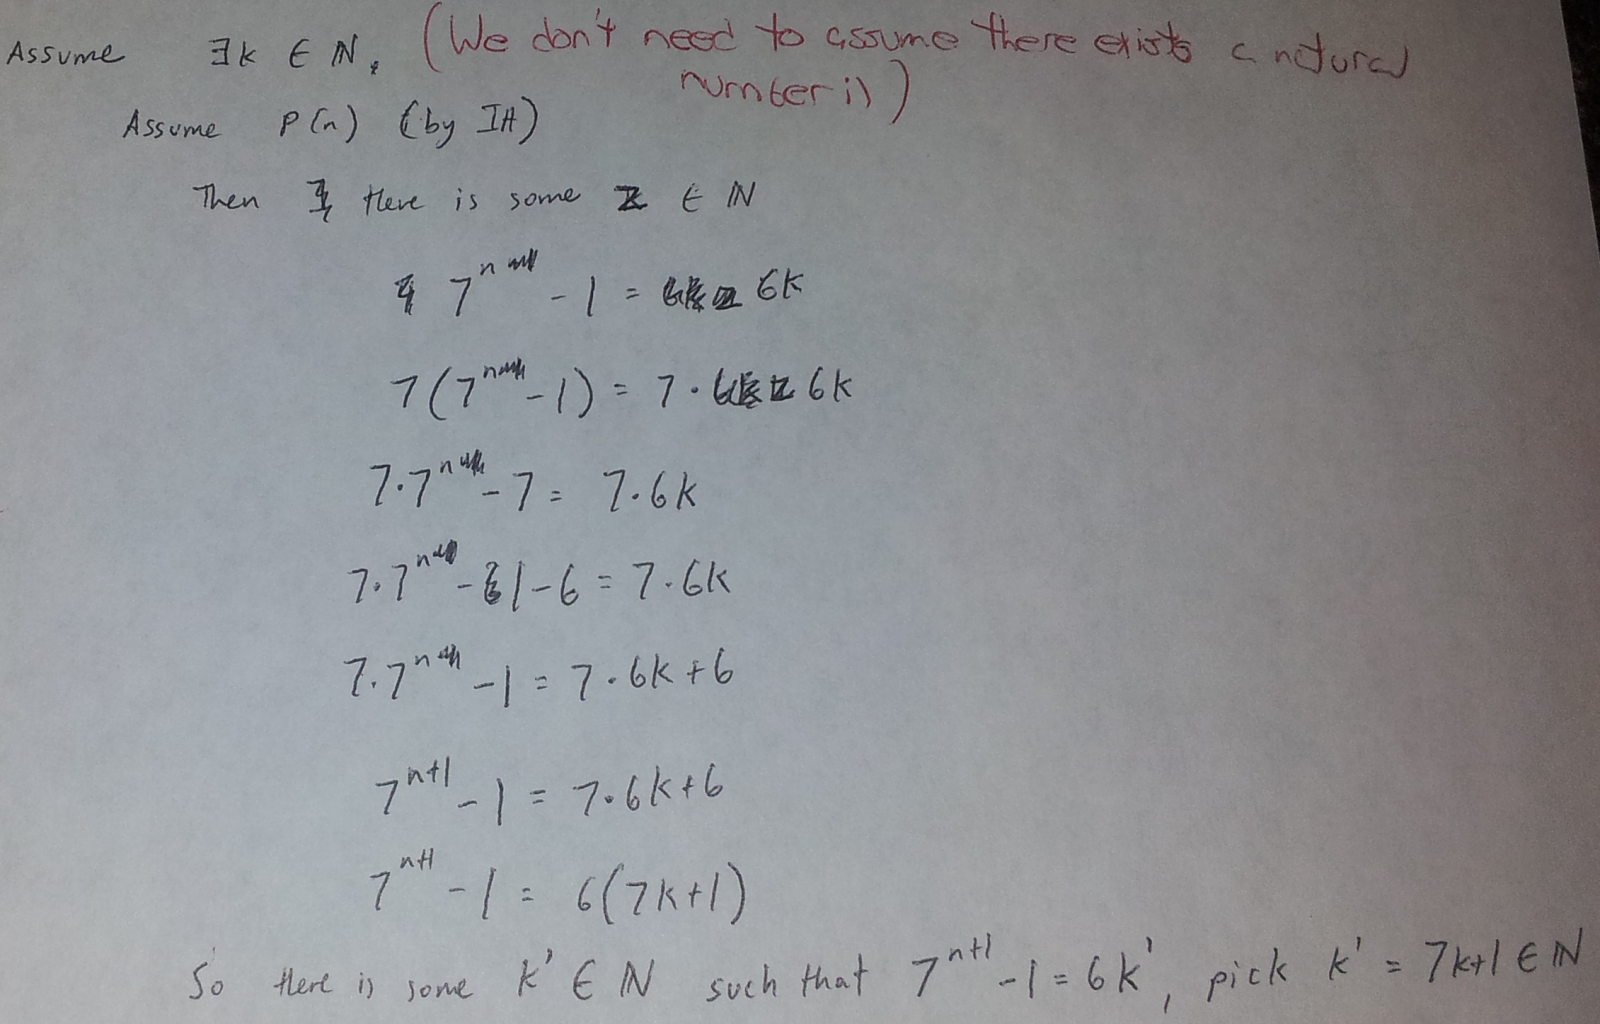 Assume ∃k ∈ ℕ, (We don't need to assume there exists a natural
number is)
Assume P(n) (by IH)
Then there is some z ∈ ℕ
7ⁿ - 1 = 6k
7(7ⁿ - 1) = 7·6k
7·7ⁿ - 7 = 7·6k
7·7ⁿ - 1 - 6 = 7·6k
7·7ⁿ - 1 = 7·6k + 6
7ⁿ⁺¹ - 1 = 7·6k + 6
7ⁿ⁺¹ - 1 = 6(7k+1)
So there is some k' ∈ ℕ such that 7ⁿ⁺¹ - 1 = 6k', pick k' = 7k+1 ∈ ℕ